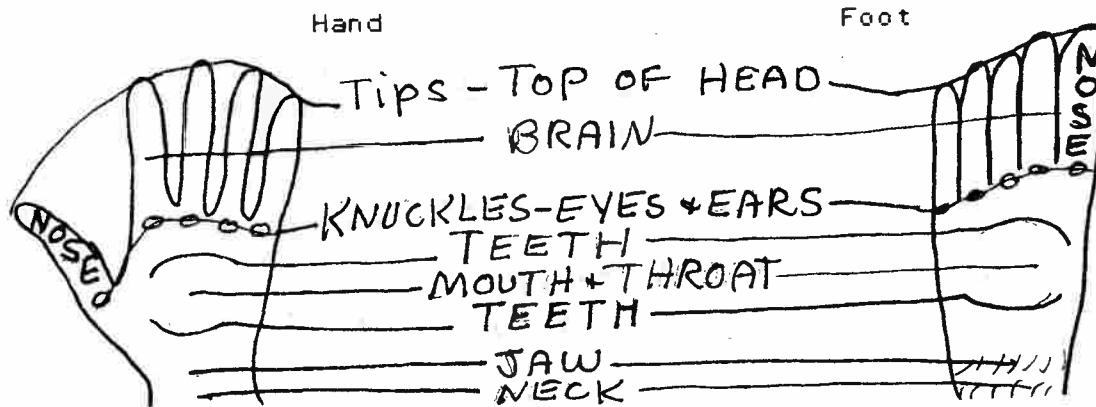 Hand Foot
Tips - TOP OF HEAD
BRAIN
KNUCKLES-EYES & EARS
TEETH
MOUTH & THROAT
TEETH
JAW
NECK
NOSE
NOSE